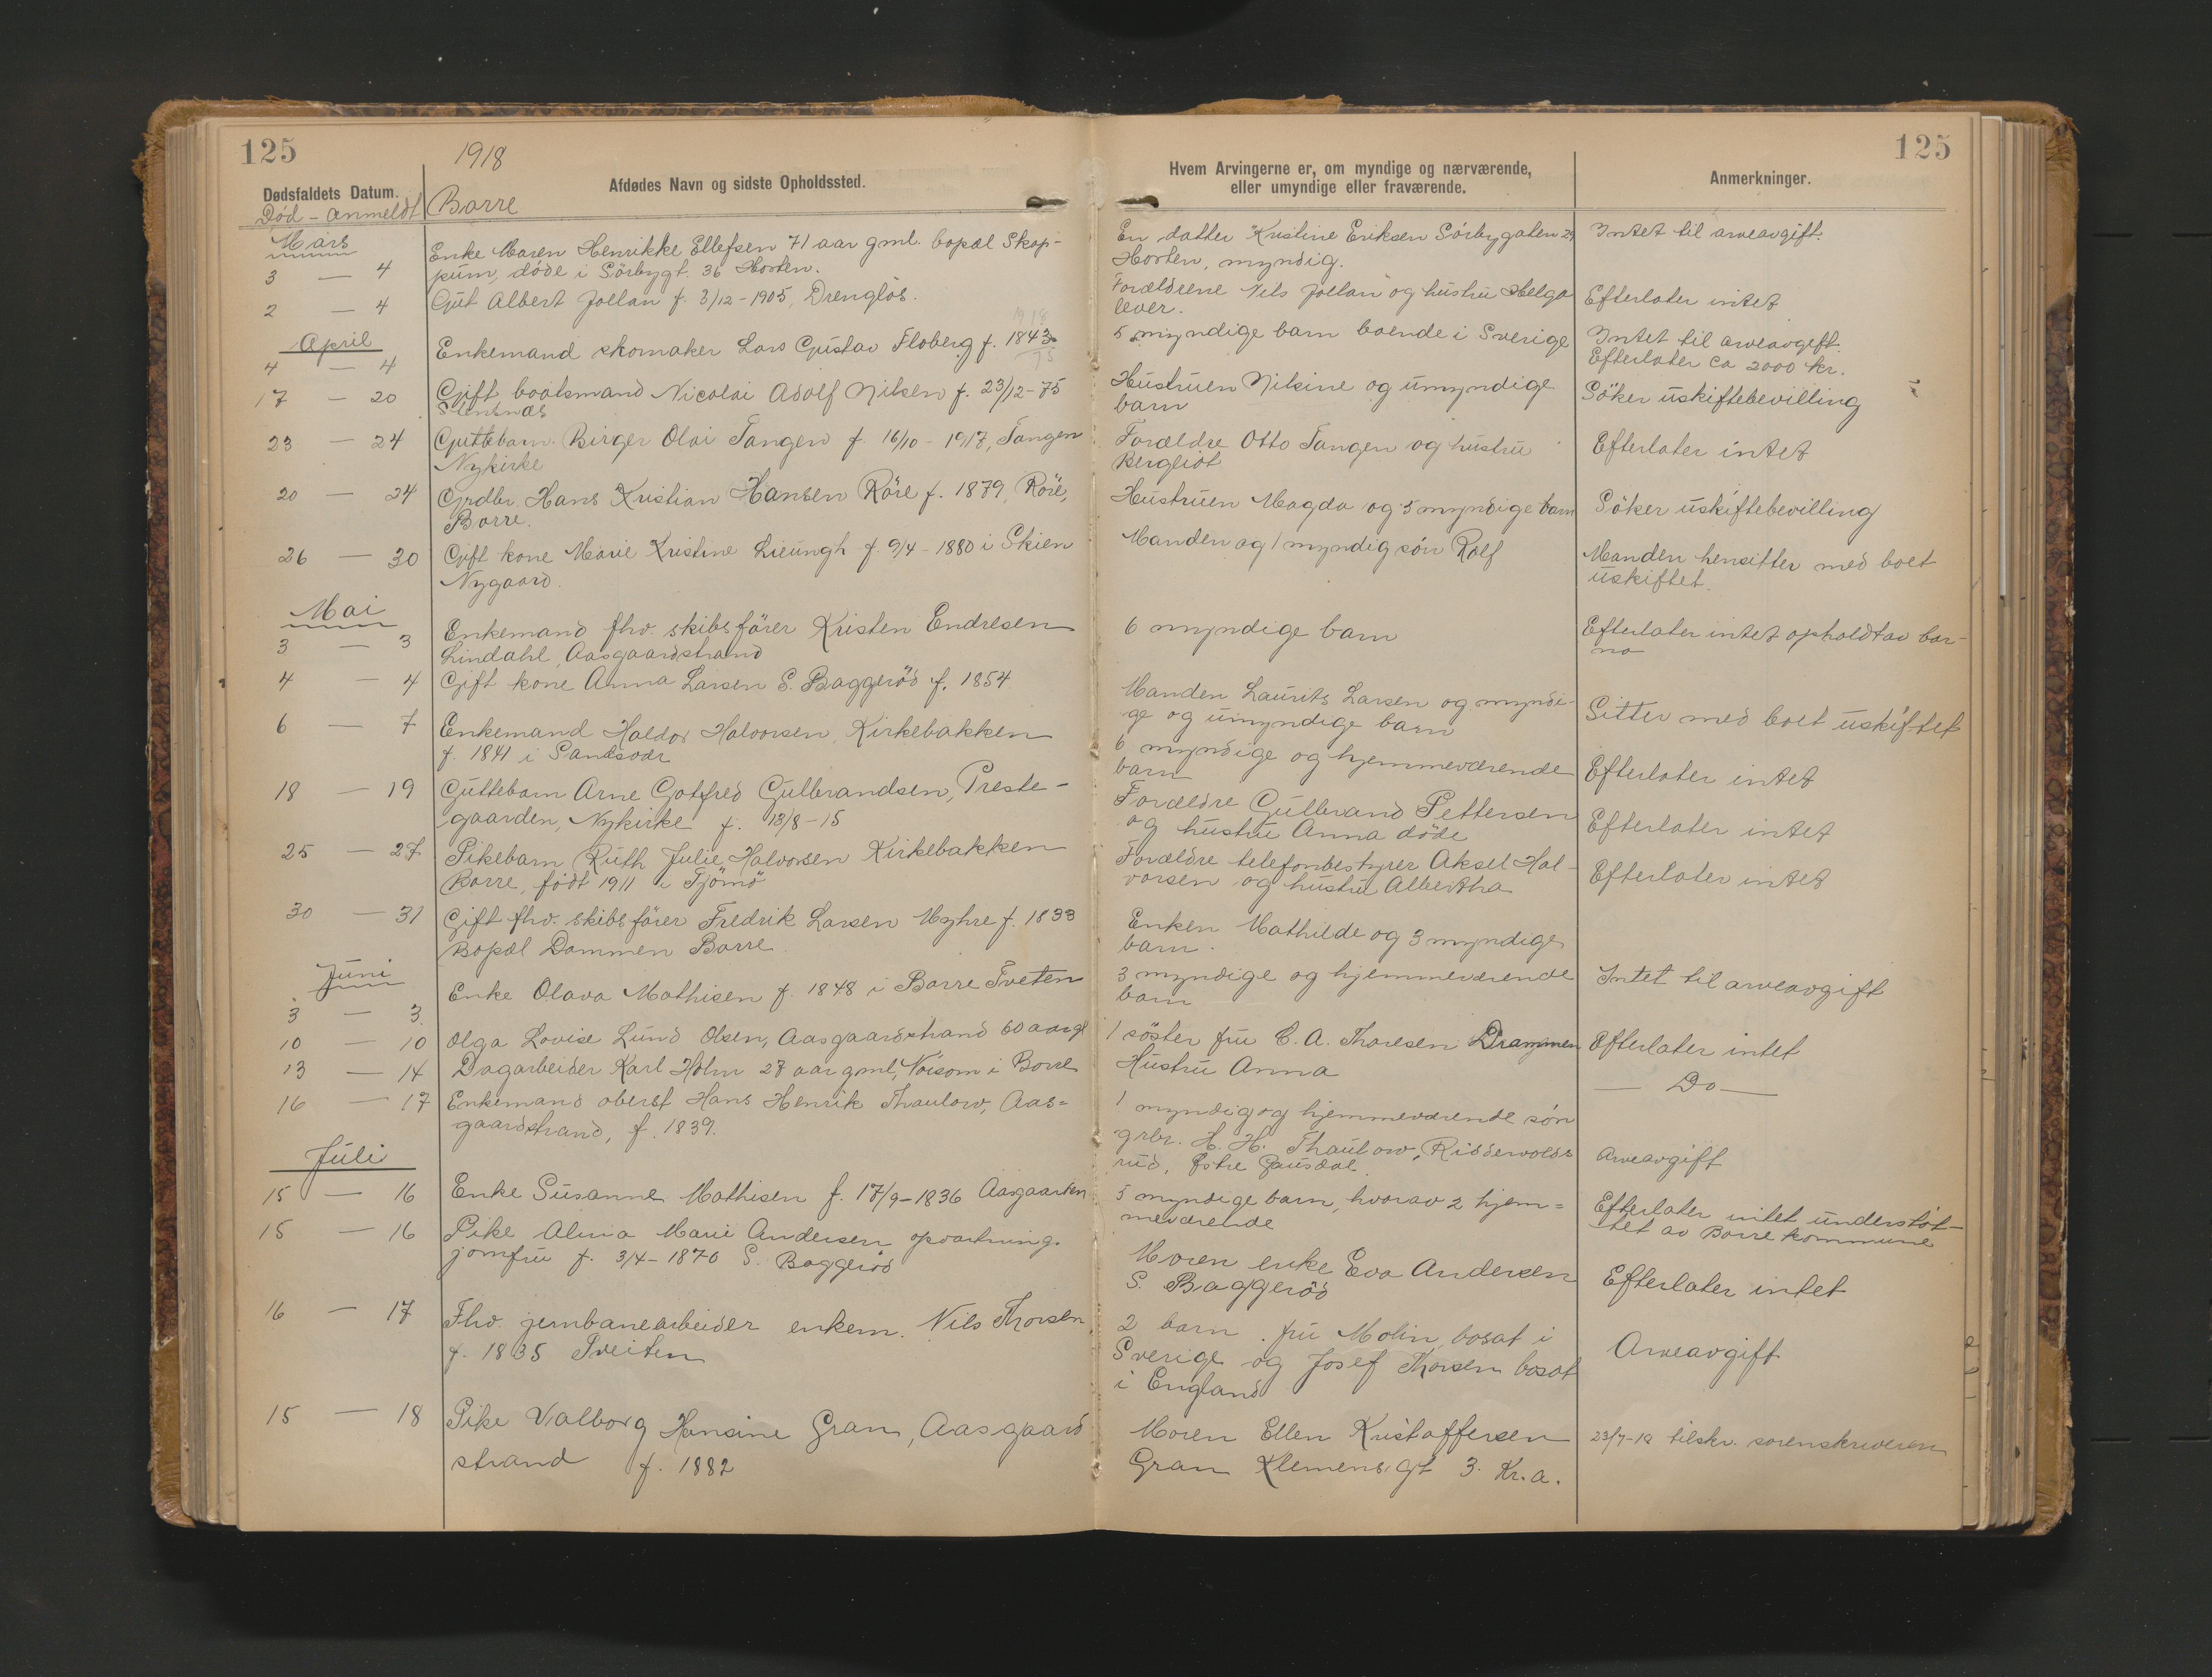 125
1918
Dødsfaldets Datum.
Afdødes Navn og sidste Opholdssted.
Død - anmeldt
Borre
Mars
3 — 4
Enke Maren Henrikke Ellefsen 71 aar gml. bopæl Skop-
pum, døde i Sörbygt. 36 Horten.
2 — 4
Gut Albert Jollan f. 3/12-1905, Drenglös.
1918
April
4 — 4
Enkemand skomaker Lars Gustav Floberg f. 1843
75
17 — 20
Gift baatsmand Nicolai Adolf Nilsen f. 23/12-75
23 — 24
Guttebarn Birger Olai Tangen f. 16/10-1917, Tangen
Nykirke
20 — 24
Grdbr. Hans Kristian Hansen Röre f. 1879, Röre,
Borre.
26 — 30
Gift kone Marie Kristine Lieungh f. 9/4-1880 i Skien
Nygaard.
Mai
3 — 3
Enkemand fhv. skibsförer Kristen Endresen
Lindahl, Aasgaardstrand
4 — 4
Gift kone Anna Larsen S. Baggeröd f. 1854
6 — 7
Enkemand Haldor Halvorsen, Kirkebakken
f. 1841 i Sandsvær
18 — 19
Guttebarn Arne Gotfred Gulbrandsen, Preste-
gaarden, Nykirke f. 13/8-15
25 — 27
Pikebarn Ruth Julie Halvorsen Kirkebakken
Borre, födt 1911 i Tjömö
30 — 31
Gift fhv. skibsförer Fredrik Larsen Myhre f. 1833
Bopæl Dammen Borre
Juni
3 — 3
Enke Olava Mathisen f. 1848 i Borre Tveten
10 — 10
Olga Lovise Lund Olsen, Aasgaardstrand 60 aar gl
13 — 14
Dagarbeider Karl Holm 27 aar gml, Voisom i Borre
16 — 17
Enkemand oberst Hans Henrik Thaulow, Aas=
gaardstrand, f. 1839.
Juli
15 — 16
Enke Susanne Mathisen f. 17/9-1836 Aasgaarden
15 — 16
Pike Alma Marie Andersen opvartnings.
jomfru f. 3/4-1870 S. Baggeröd
16 — 17
Fhv. jernbanearbeider enkem. Nils Thorsen
f. 1835 Tveiten
15 — 18
Pike Valborg Hansine Gran, Aasgaard
strand f. 1882
125
Hvem Arvingerne er, om myndige og nærværende,
eller umyndige eller fraværende.
Anmerkninger.
En datter Kristine Eriksen Sörbygaten 29
Horten, myndig.
Intet til arveavgift.
Forældrene Nils Jollan og hustru Helga
lever.
Efterlater intet
5 myndige barn boende i Sverige
Intet til arveavgift.
Efterlater ca 2000 kr.
Hustruen Nilsine og umyndige
barn
Söker uskiftebevilling
Forældre Otto Tangen og hustru
Bergliot
Efterlater intet
Hustruen Magda og 5 myndige barn
Söker uskiftebevilling
Manden og 1 myndig sön Rolf
Manden hensitter med boet
uskiftet.
6 myndige barn
Efterlater intet opholdt av bar-
na
Manden Laurits Larsen og myndi-
ge og umyndige barn
Sitter med boet uskiftet
6 myndige og hjemmeværende
barn
Efterlater intet
Forældre Gulbrand Pettersen
og hustru Anna döde
Efterlater intet
Forældre telefonbestyrer Aksel Hal-
vorsen og hustru Albertha
Efterlater intet
Enken Mathilde og 3 myndige
barn.
3 myndige og hjemmeværende
barn
Intet til arveavgift
1 söster fru C. A. Thoresen Drammen
Efterlater intet
Hustru Anna
— Do —
1 myndig og hjemmeværende sön
grbr. H. H. Thaulow, Ridderwolds
rud, Östre Gausdal.
Arveavgift
5 myndige barn, hvorav 2 hjem=
meværende
Efterlater intet understöt-
tet av Borre kommune
Moren enke Eva Andersen
S. Baggeröd
Efterlater intet
2 barn. fru Molin, bosat i
Sverige og Josef Thorsen bosat
i England
Arveavgift
Moren Ellen Kristoffersen
Gran Klemensgt 3. Kr.a.
23/7-18 tilskr. sorenskriveren